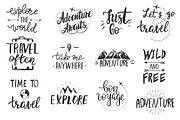 explore
the
world
Adventure
Awaits
Just
Go
Let's go
travel
TRAVEL
often
take me
ANYWHERE
ADVENTURE
WILD
AND
FREE
TIME TO
travel
EXPLORE
bon
voyage
ADVENTURE